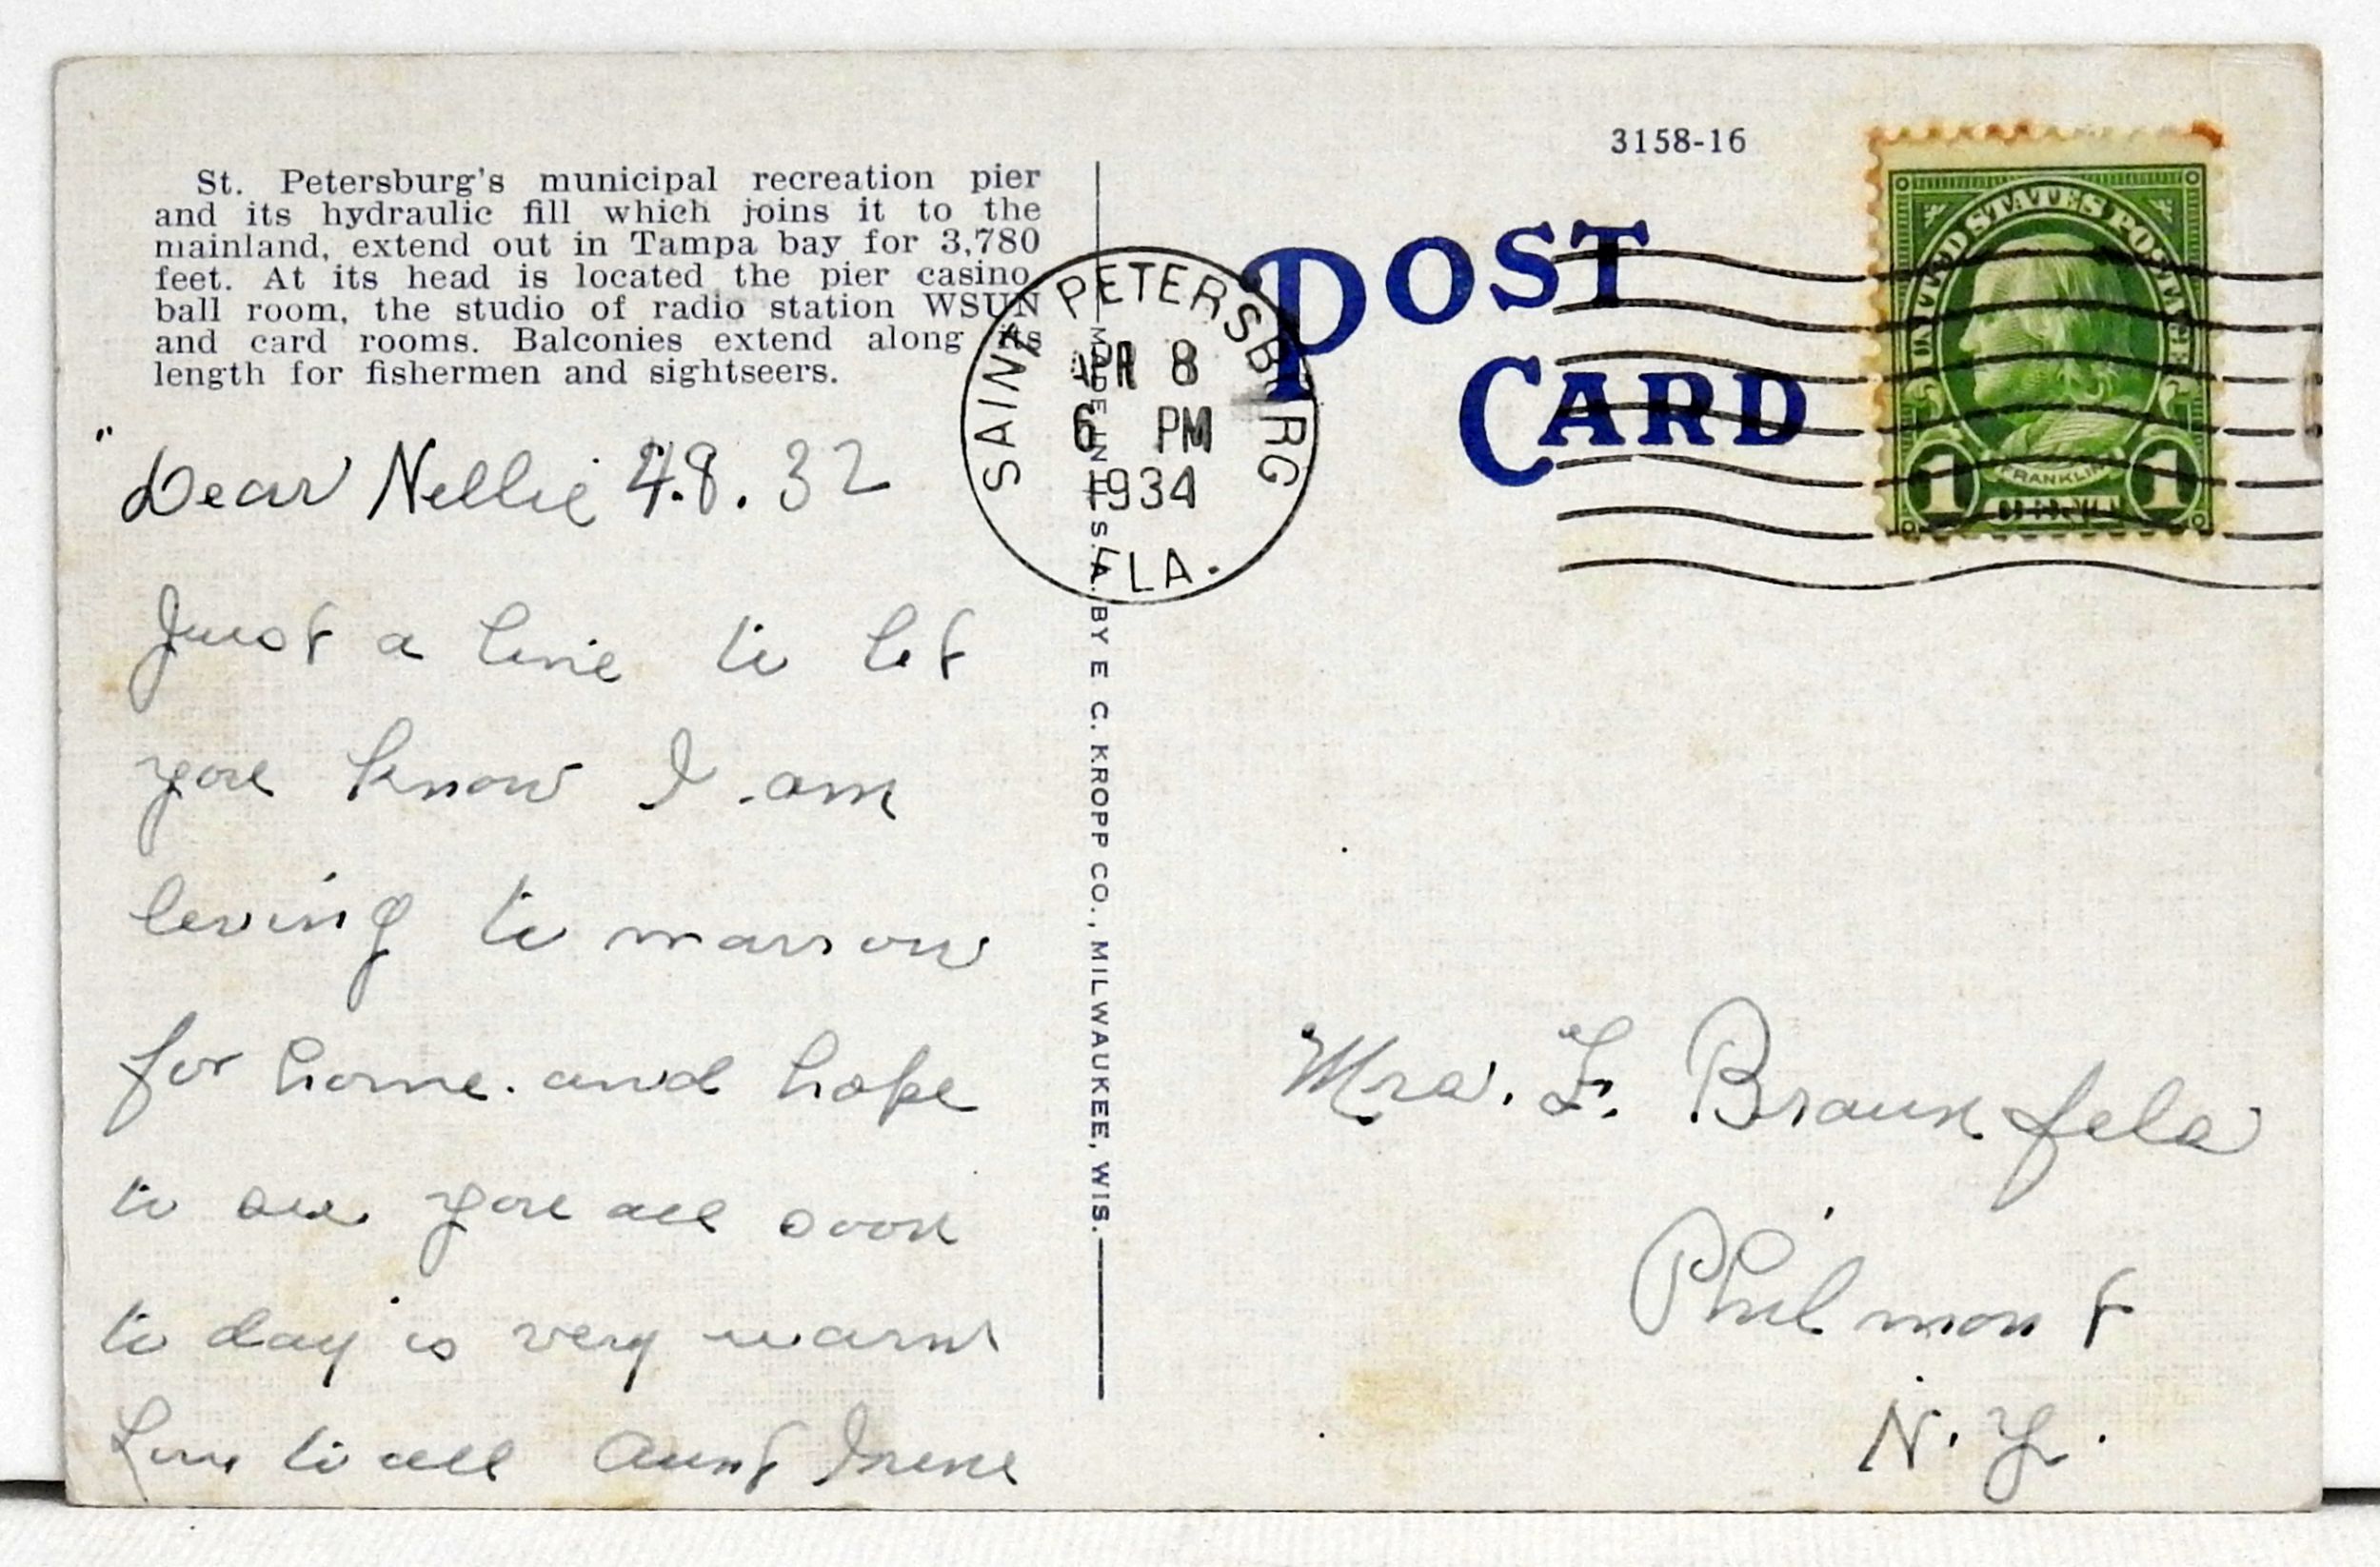 St. Petersburg's municipal recreation pier
and its hydraulic fill which joins it to the
mainland, extend out in Tampa bay for 3,780
feet. At its head is located the pier casino
ball room, the studio of radio station WSUN
and card rooms. Balconies extend along its
length for fishermen and sightseers.
Dear Nellie 4.8.32
Just a line to let
you know I am
leving to marrow
for home. and hope
to see you all soon
to day is very warm
Love to all Aunt Irene
MADE IN U.S.A. BY E. C. KROPP CO., MILWAUKEE, WIS.
SAINT PETERSBURG
APR 8
6 PM
1934
FLA.
3158-16
POST
CARD
UNITED STATES POSTAGE
FRANKLIN
1 1
Mrs. F. Braunfels
Philmont
N.Y.